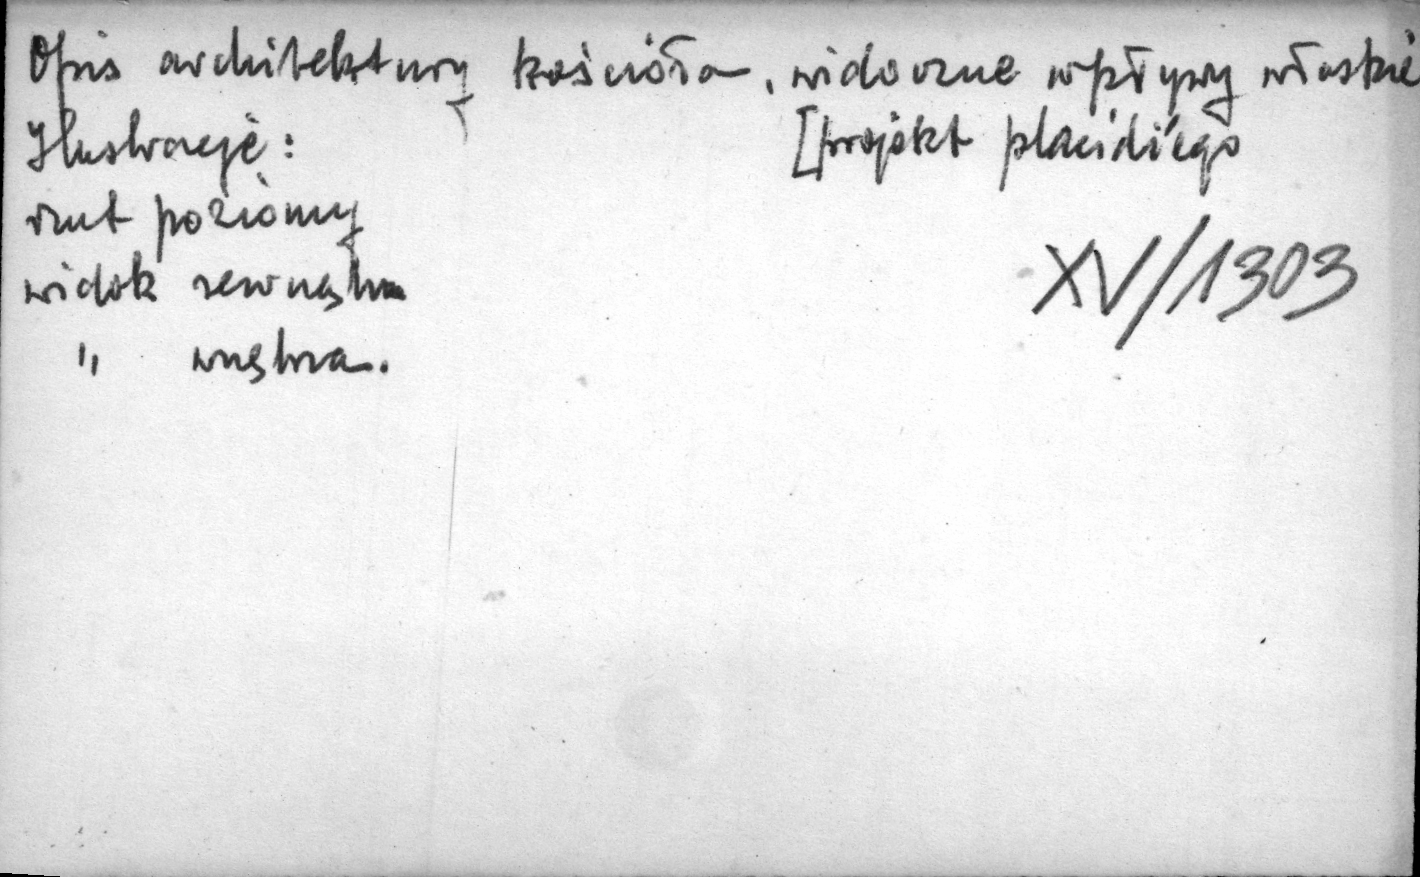 Opis architektury kościoła, widoczne wpływy włoskie
Ilustracje: [projekt placidi'ego
rzut poziomy
widok zewnątrz
XV/1303
" wnętrza.